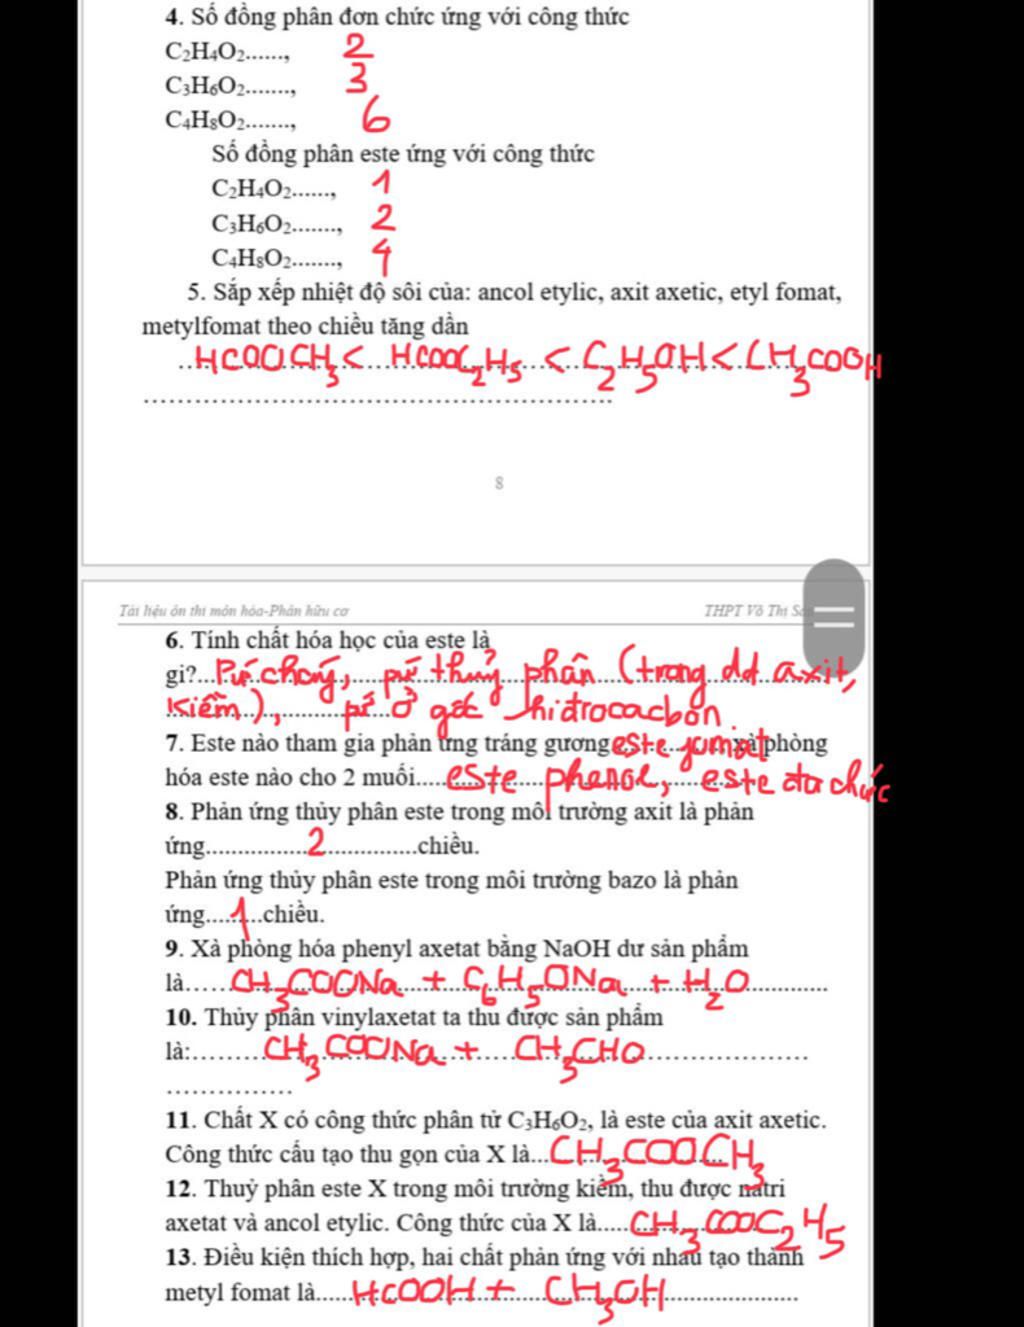 4. Số đồng phân đơn chức ứng với công thức
C₂H₄O₂......, 2
C₃H₆O₂......., 3
C₄H₈O₂......., 6
Số đồng phân este ứng với công thức
C₂H₄O₂......, 1
C₃H₆O₂......., 2
C₄H₈O₂......., 4
5. Sắp xếp nhiệt độ sôi của: ancol etylic, axit axetic, etyl fomat,
metylfomat theo chiều tăng dần
HCOOCH₃ < HCOOC₂H₅ < C₂H₅OH < CH₃COOH
8
Tài liệu ôn thi môn hóa-Phần hữu cơ THPT Võ Thị
6. Tính chất hóa học của este là
gì?...Pứ cháy, pứ thuỷ phân (trong dd axit,
kiềm), pứ ở gốc hiđrocacbon.
7. Este nào tham gia phản ứng tráng gương este fomat xà phòng
hóa este nào cho 2 muối....este phenol, este đa chức
8. Phản ứng thủy phân este trong môi trường axit là phản
ứng.................2...............chiều.
Phản ứng thủy phân este trong môi trường bazo là phản
ứng....1....chiều.
9. Xà phòng hóa phenyl axetat bằng NaOH dư sản phẩm
là.....CH₃COONa + C₆H₅ONa + H₂O
10. Thủy phân vinylaxetat ta thu được sản phẩm
là:..........CH₃COONa + CH₃CHO
11. Chất X có công thức phân tử C₃H₆O₂, là este của axit axetic.
Công thức cấu tạo thu gọn của X là...CH₃COOCH₃
12. Thuỷ phân este X trong môi trường kiềm, thu được natri
axetat và ancol etylic. Công thức của X là.....CH₃COOC₂H₅
13. Điều kiện thích hợp, hai chất phản ứng với nhau tạo thành
metyl fomat là......HCOOH + CH₃OH